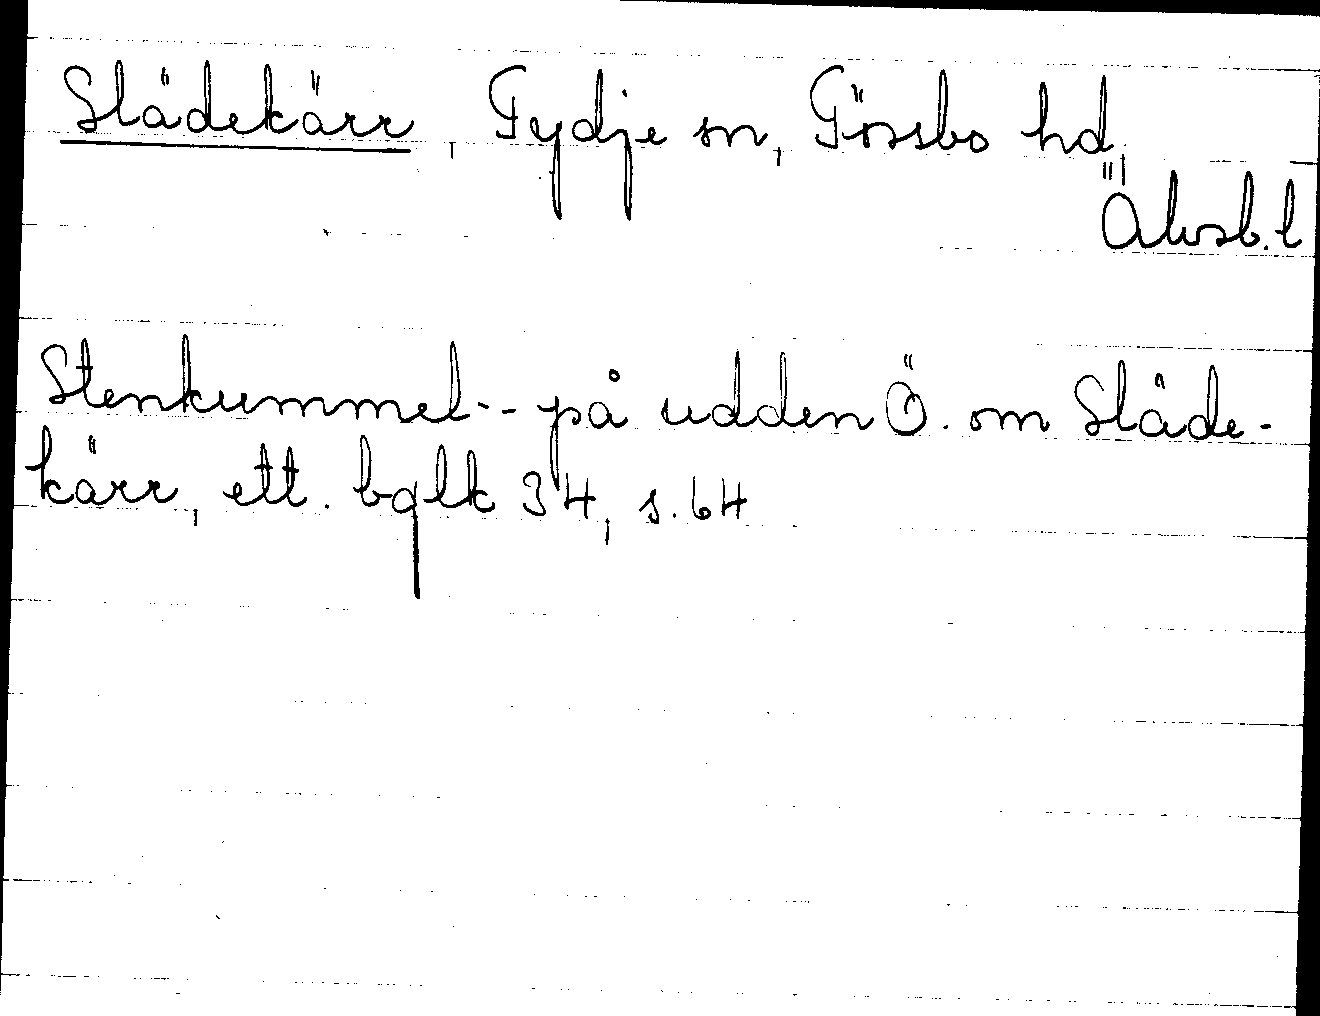 Slädekärr, Tydje sn, Tössbo hd,
Älvsb. l
Stenkummel-- på udden Ö. om Släde-
kärr, ett. bglk 34, s. 64